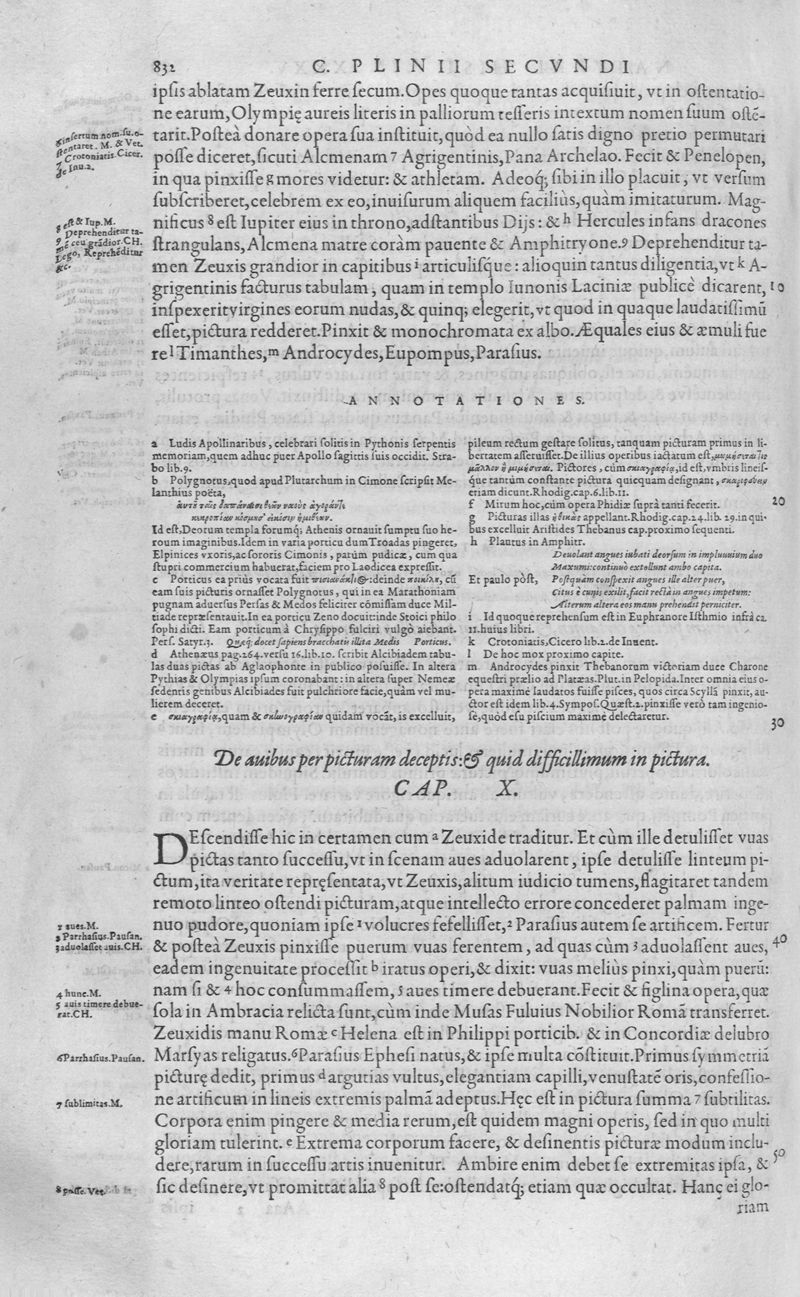 832 C. PLINII SECVNDI
ipſis ablatam Zeuxin ferre ſecum. Opes quoque tantas acquiſiuit, vt in oſtentatio-
ne earum, Olympię aureis literis in palliorum teſſeris intextum nomen ſuum oſtẽ-
tarit. Poſteà donare opera ſua inſtituit, quòd ea nullo ſatis digno pretio permutari
poſſe diceret, ſicuti Alcmenam 7 Agrigentinis, Pana Archelao. Fecit & Penelopen,
in qua pinxiſſe g mores videtur: & athletam. Adeoq; ſibi in illo placuit, vt verſum
ſubſcriberet, celebrem ex eo, inuiſurum aliquem faciliùs, quàm imitaturum. Mag-
nificus 8 eſt Iupiter eius in throno, adſtantibus Dijs: & h Hercules infans dracones
ſtrangulans, Alcmena matre coràm pauente & Amphitryone. 9 Deprehenditur ta-
men Zeuxis grandior in capitibus i articuliſque: alioquin tantus diligentia, vt k A-
grigentinis facturus tabulam, quam in templo Iunonis Laciniæ publicè dicarent, 10
inſpexerit virgines eorum nudas, & quinq; elegerit, vt quod in quaque laudatiſſimũ
eſſet, pictura redderet. Pinxit & monochromata ex albo. Æquales eius & æmuli fue
re l Timanthes, m Androcydes, Eupompus, Paraſius.
ginſertum nom. ſu. o-
ſtentaret. M. & Vet.
7 Crotoniatis Cicer.
de Inu. 2.
8 eſt & Iup. M.
9 Deprehenditur ta-
mẽ ceu grãdior. CH.
Lego, Reprehẽditur
&c.
ANNOTATIONES.
a Ludis Apollinaribus, celebrari ſolitis in Pythonis ſerpentis
memoriam, quem adhuc puer Apollo ſagittis ſuis occidit. Stra-
bo lib. 9.
b Polygnotus, quod apud Plutarchum in Cimone ſcripſit Me-
lanthius poëta,
Id eſt, Deorum templa forumq; Athenis ornauit ſumptu ſuo he-
roum imaginibus. Idem in varia porticu dum Troadas pingeret,
Elpinices vxoris, ac ſororis Cimonis, parùm pudicæ, cum qua
ſtupri commercium habuerat, faciem pro Laodicea expreſſit.
c Porticus ea priùs vocata fuit :deinde ποικίλη, cũ
eam ſuis picturis ornaſſet Polygnotus, qui in ea Marathoniam
pugnam aduerſus Perſas & Medos feliciter cõmiſſam duce Mil-
tiade repræſentauit. In ea porticu Zeno docuit: inde Stoici philo
ſophi dicti. Eam porticum à Chryſippo fulciri vulgò aiebant.
Perſ. Satyr. 3. Quæq; docet ſapiens bracchatis illita Medis Porticus.
d Athenæus pag. 264. verſu 16. lib. 10. ſcribit Alcibiadem tabu-
las duas pictas ab Aglaophonte in publico poſuiſſe. In altera
Pythias & Olympias ipſum coronabant: in altera ſuper Nemeæ
ſedentis genibus Alcibiades fuit pulchriore facie, quàm vel mu-
lierem deceret.
e σκιαγραφία, quam & quidam vocãt, is excelluit,
pileum rectum geſtare ſolitus, tanquam picturam primus in li-
bertatem aſſeruiſſet. De illius operibus iactatum eſt,
Pictores, cùm σκιαγραφία, id eſt, vmbris lineiſ-
que tantùm conſtante pictura quicquam deſignant,
etiam dicunt. Rhodig. cap. 6. lib. 11.
f Mirum hoc, cùm opera Phidiæ ſuprà tanti fecerit. 20
g Picturas illas appellant. Rhodig. cap. 24. lib. 29. in qui-
bus excelluit Ariſtides Thebanus cap. proximo ſequenti.
h Plautus in Amphitr.
Deuolant angues iubati deorſum in impluuium duo
Maxumi: continuò extollunt ambo capita.
Et paulo pòſt, Poſtquam conſpexit angues ille alter puer,
Citus è cunis exilit, facit rectà in angues impetum:
Alterum altera eos manu prehendit perniciter.
i Id quoque reprehenſum eſt in Euphranore Iſthmio infrà ca.
11. huius libri.
k Crotoniatis, Cicero lib. 2. de Inuent.
l De hoc mox proximo capite.
m Androcydes pinxit Thebanorum victoriam duce Charone
equeſtri prælio ad Platæas. Plut. in Pelopida. Inter omnia eius o-
pera maximè laudatos fuiſſe piſces, quos circa Scyllã pinxit, au-
ctor eſt idem lib. 4. Sympoſ. Quæſt. 2. pinxiſſe verò tam ingenio-
ſè, quòd eſu piſcium maximè delectaretur. 30
De auibus per picturam deceptis: & quid difficillimum in pictura.
CAP. X.
DEſcendiſſe hic in certamen cum a Zeuxide traditur. Et cùm ille detuliſſet vuas
pictas tanto ſucceſſu, vt in ſcenam aues aduolarent, ipſe detuliſſe linteum pi-
ctum, ita veritate repręſentata, vt Zeuxis, alitum iudicio tumens, flagitaret tandem
remoto linteo oſtendi picturam, atque intellecto errore concederet palmam inge-
nuo pudore, quoniam ipſe 1 volucres fefelliſſet, 2 Paraſius autem ſe artificem. Fertur
& poſteà Zeuxis pinxiſſe puerum vuas ferentem, ad quas cùm 3 aduolaſſent aues, 40
eadem ingenuitate proceſſit b iratus operi, & dixit: vuas meliùs pinxi, quàm puerũ:
nam ſi & 4 hoc conſummaſſem, 5 aues timere debuerant. Fecit & figlina opera, quæ
ſola in Ambracia relicta ſunt, cùm inde Muſas Fuluius Nobilior Romã transferret.
Zeuxidis manu Romæ c Helena eſt in Philippi porticib. & in Concordiæ delubro
Marſyas religatus. 6 Paraſius Epheſi natus, & ipſe multa cõſtituit. Primus ſymmetriã
picturę dedit, primus d argutias vultus, elegantiam capilli, venuſtatẽ oris, confeſſio-
ne artificum in lineis extremis palmã adeptus. Hęc eſt in pictura ſumma 7 ſubtilitas.
Corpora enim pingere & media rerum, eſt quidem magni operis, ſed in quo multi
gloriam tulerint. e Extrema corporum facere, & deſinentis picturæ modum inclu-
dere, rarum in ſucceſſu artis inuenitur. Ambire enim debet ſe extremitas ipſa, & 50
ſic deſinere, vt promittat alia 8 poſt ſe: oſtendatq; etiam quæ occultat. Hanc ei glo-
riam
1 aues. M.
2 Parrhaſius. Pauſan.
3 aduolaſſet auis. CH.
4 hunc. M.
5 auis timere debue-
rat. CH.
6 Parrhaſius. Pauſan.
7 ſublimitas. M.
8 poſſe. Vet.